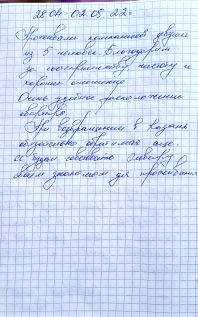 28.04-02.05.22г
Проживали компанией
из 5 человек. Благодарим
за гостеприимство, чистоту и
хорошее отношение
Очень удобное расположение
квартиры.
При возвращении в Казань
обязательно обратимся
и будем советовать
всем знакомым для проживания